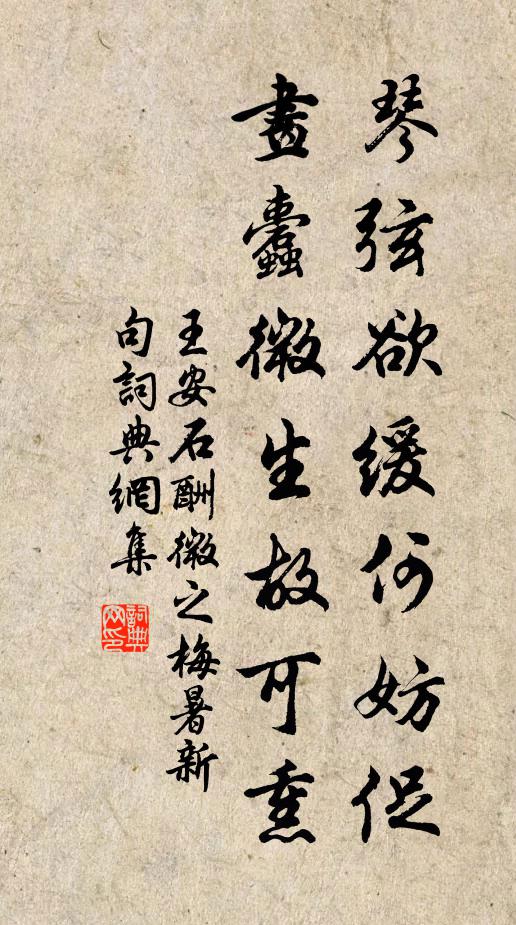 琴弦欲緩何妨促
畫蠹微生故可熏
王安石酬微之梅暑新
句詞典網集
詞典
网印